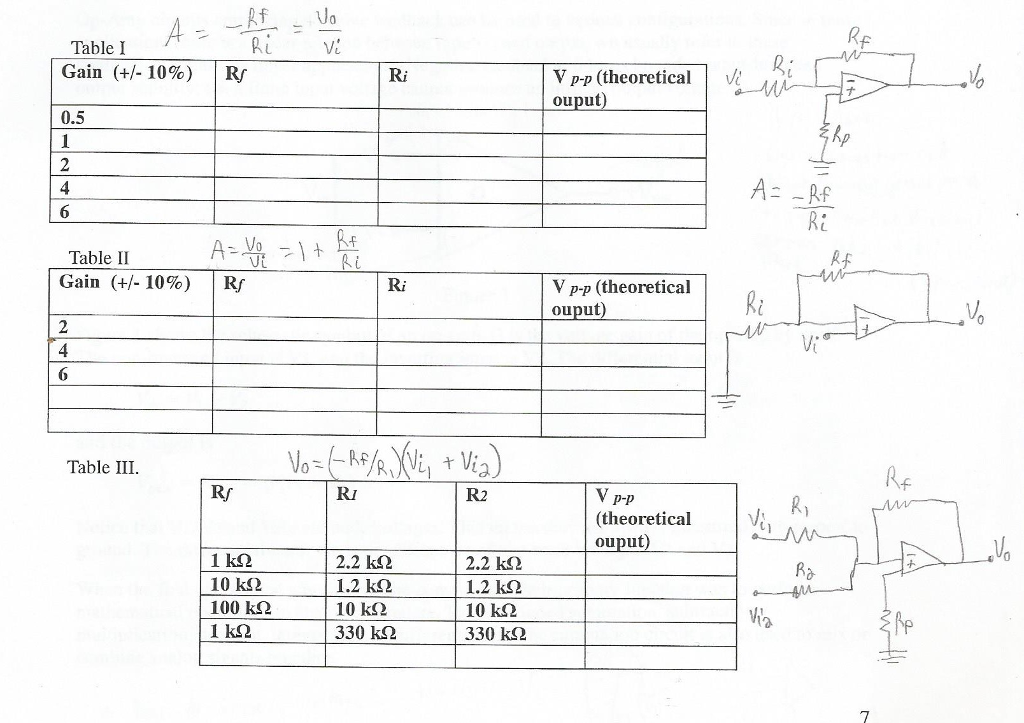 A = -Rf/Ri = Vo/Vi
Table I
Gain (+/- 10%) Rf Ri V p-p (theoretical
ouput)
0.5
1
2
4
6
Vi Ri Rf - + Vo
Rp
A = -Rf/Ri
Table II
A = Vo/Vi = 1 + Rf/Ri
Gain (+/- 10%) Rf Ri V p-p (theoretical
ouput)
2
4
6
Ri Rf Vi - + Vo
Table III.
Vo = (-Rf/R1)(Vi1 + Vi2)
Rf R1 R2 V p-p
(theoretical
ouput)
1 kΩ 2.2 kΩ 2.2 kΩ
10 kΩ 1.2 kΩ 1.2 kΩ
100 kΩ 10 kΩ 10 kΩ
1 kΩ 330 kΩ 330 kΩ
Vi1 R1 Rf
R2 - + Vo
Vi2 Rp
7